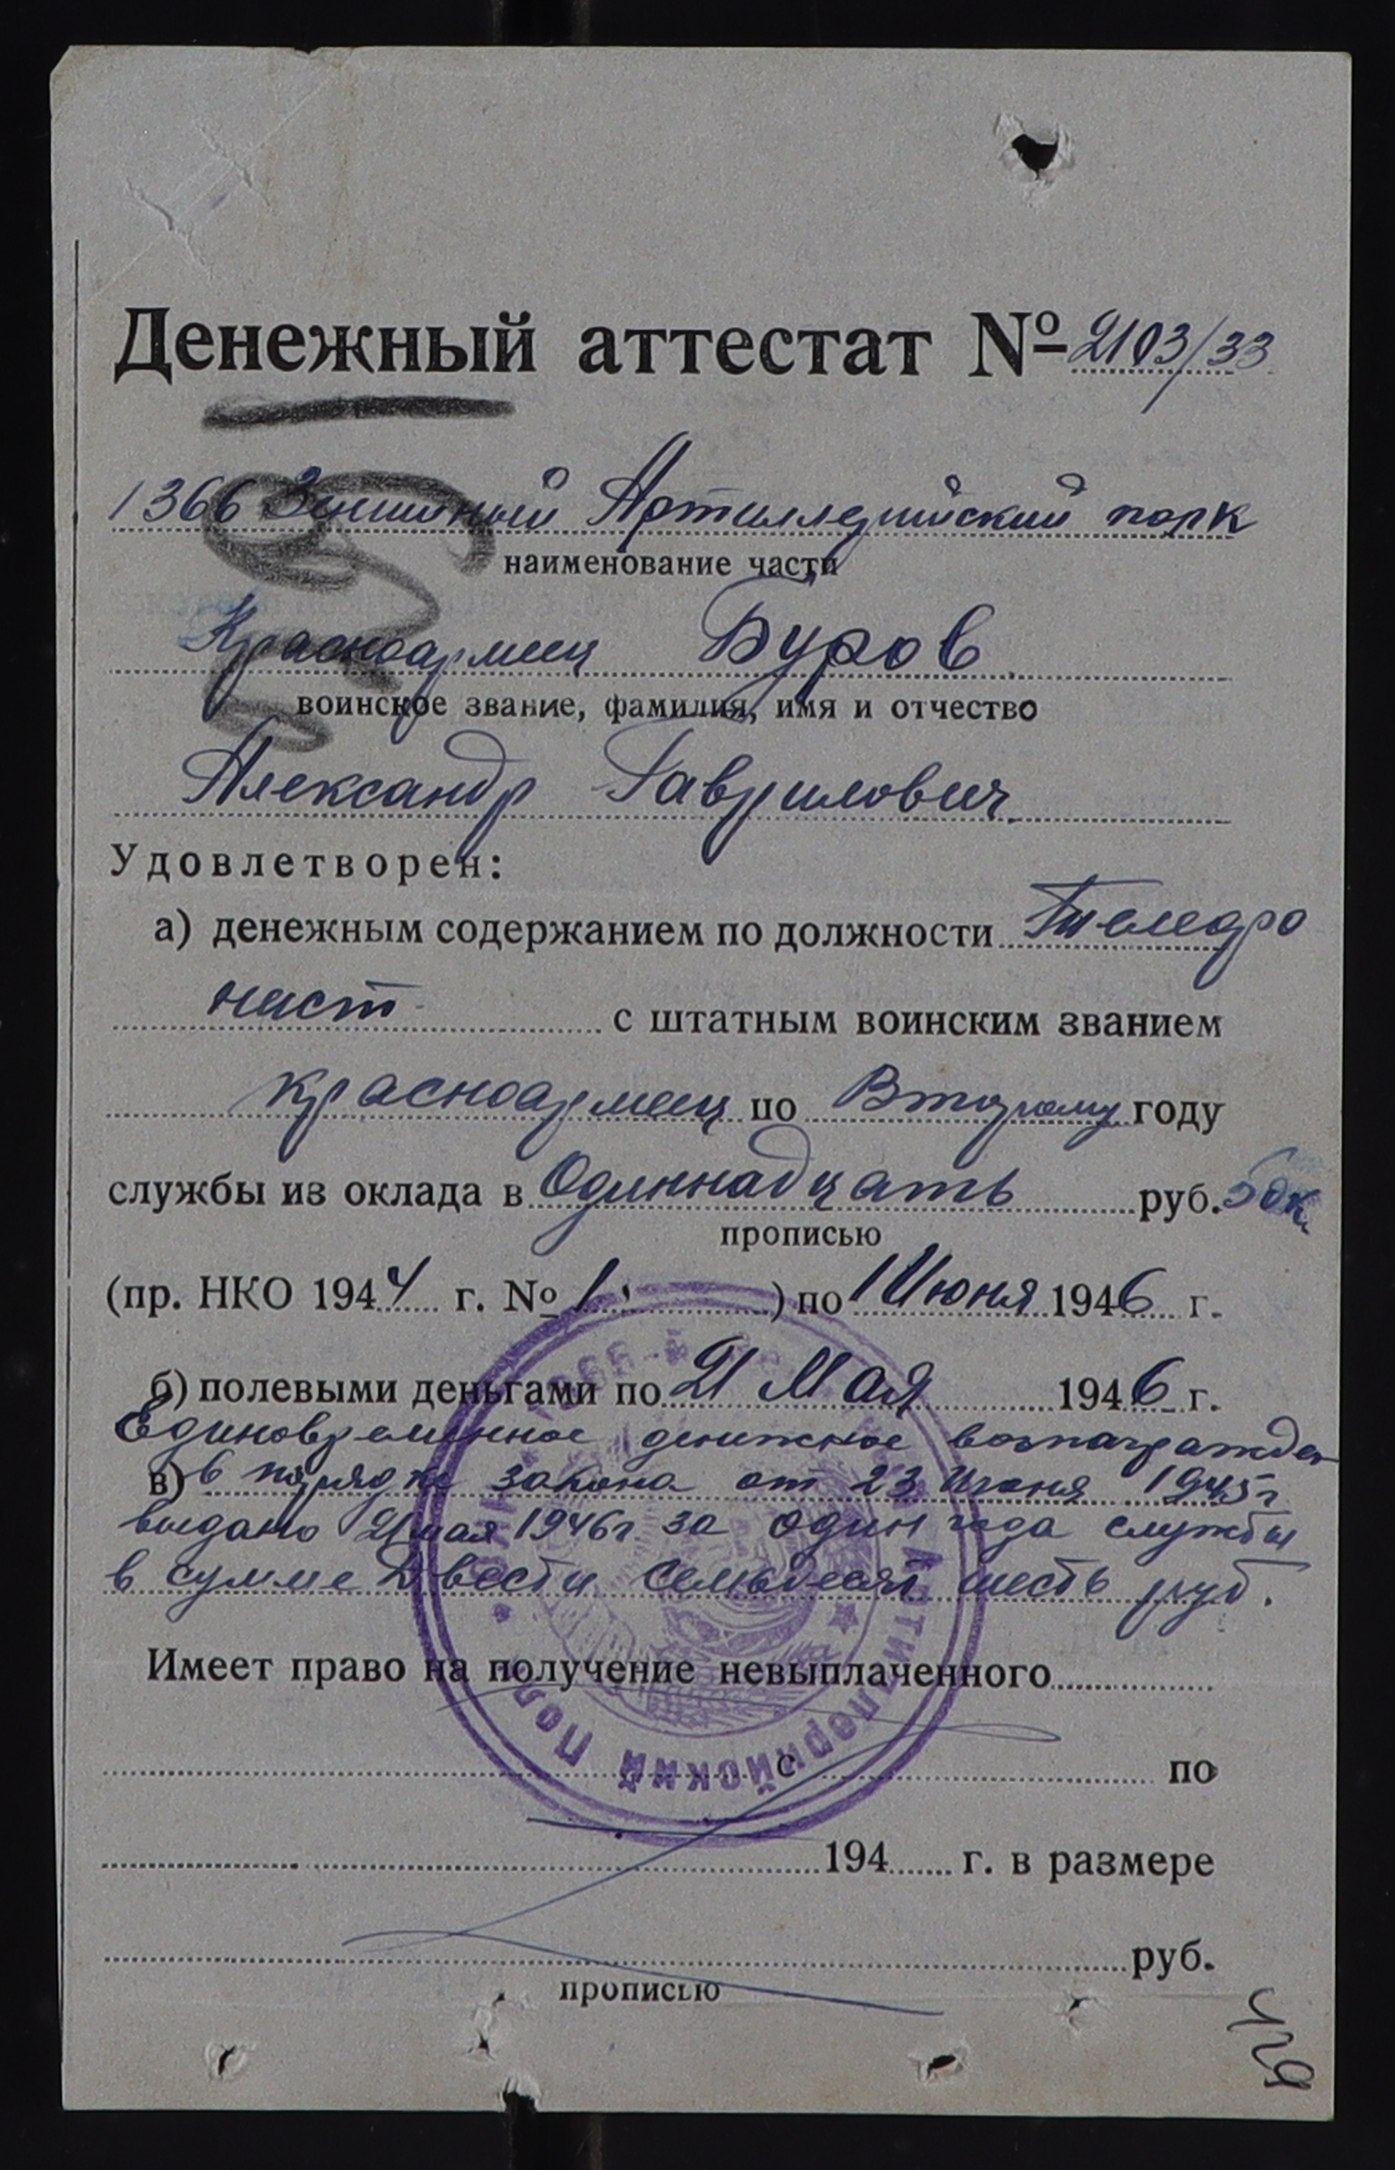 Денежный аттестат № 2103/33
1366 Зенитный Артиллерийский полк
наименование части
Красноармеец Буров
воинское звание, фамилия, имя и отчество
Александр Гаврилович
Удовлетворен:
а) денежным содержанием по должности Телефо
нист с штатным воинским званием
красноармеец по Второму году
службы из оклада в Одиннадцать руб. 50к.
прописью
(пр. НКО 1944 г. № 1) по 1 Июня 1946 г.
б) полевыми деньгами по 21 Мая 1946 г.
Единовременное денежное вознагражден
в) в порядке закона от 23 Июня 1945г
выдано 21 мая 1946г за один года службы
в сумме Двести семьдесят шесть руб.
Имеет право на получение невыплаченного
с по
194 г. в размере
руб.
прописью